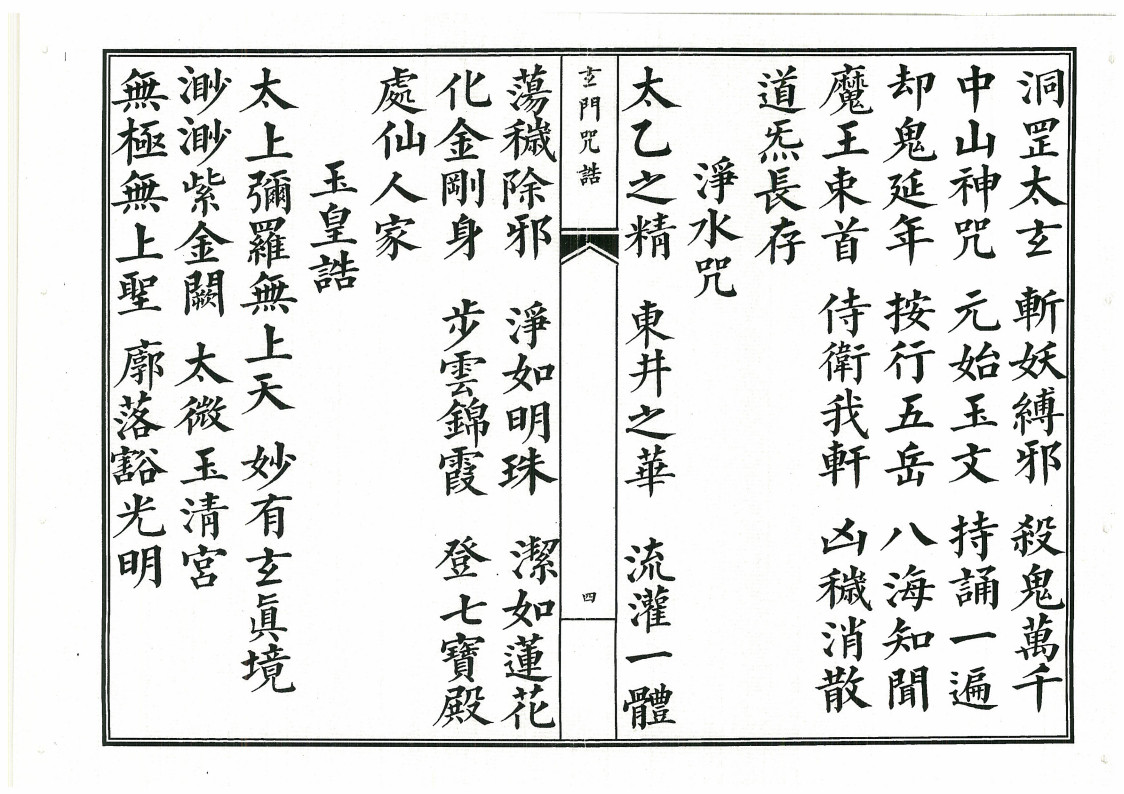 洞罡太玄　斬妖縛邪　殺鬼萬千
中山神咒　元始玉文　持誦一遍
却鬼延年　按行五岳　八海知聞
魔王束首　侍衛我軒　凶穢消散
道炁長存
淨水咒
太乙之精　東井之華　流灌一體
玄門咒誥　四
蕩穢除邪　淨如明珠　潔如蓮花
化金剛身　步雲錦霞　登七寶殿
處仙人家
玉皇誥
太上彌羅無上天　妙有玄眞境
渺渺紫金闕　太微玉淸宮
無極無上聖　廓落豁光明